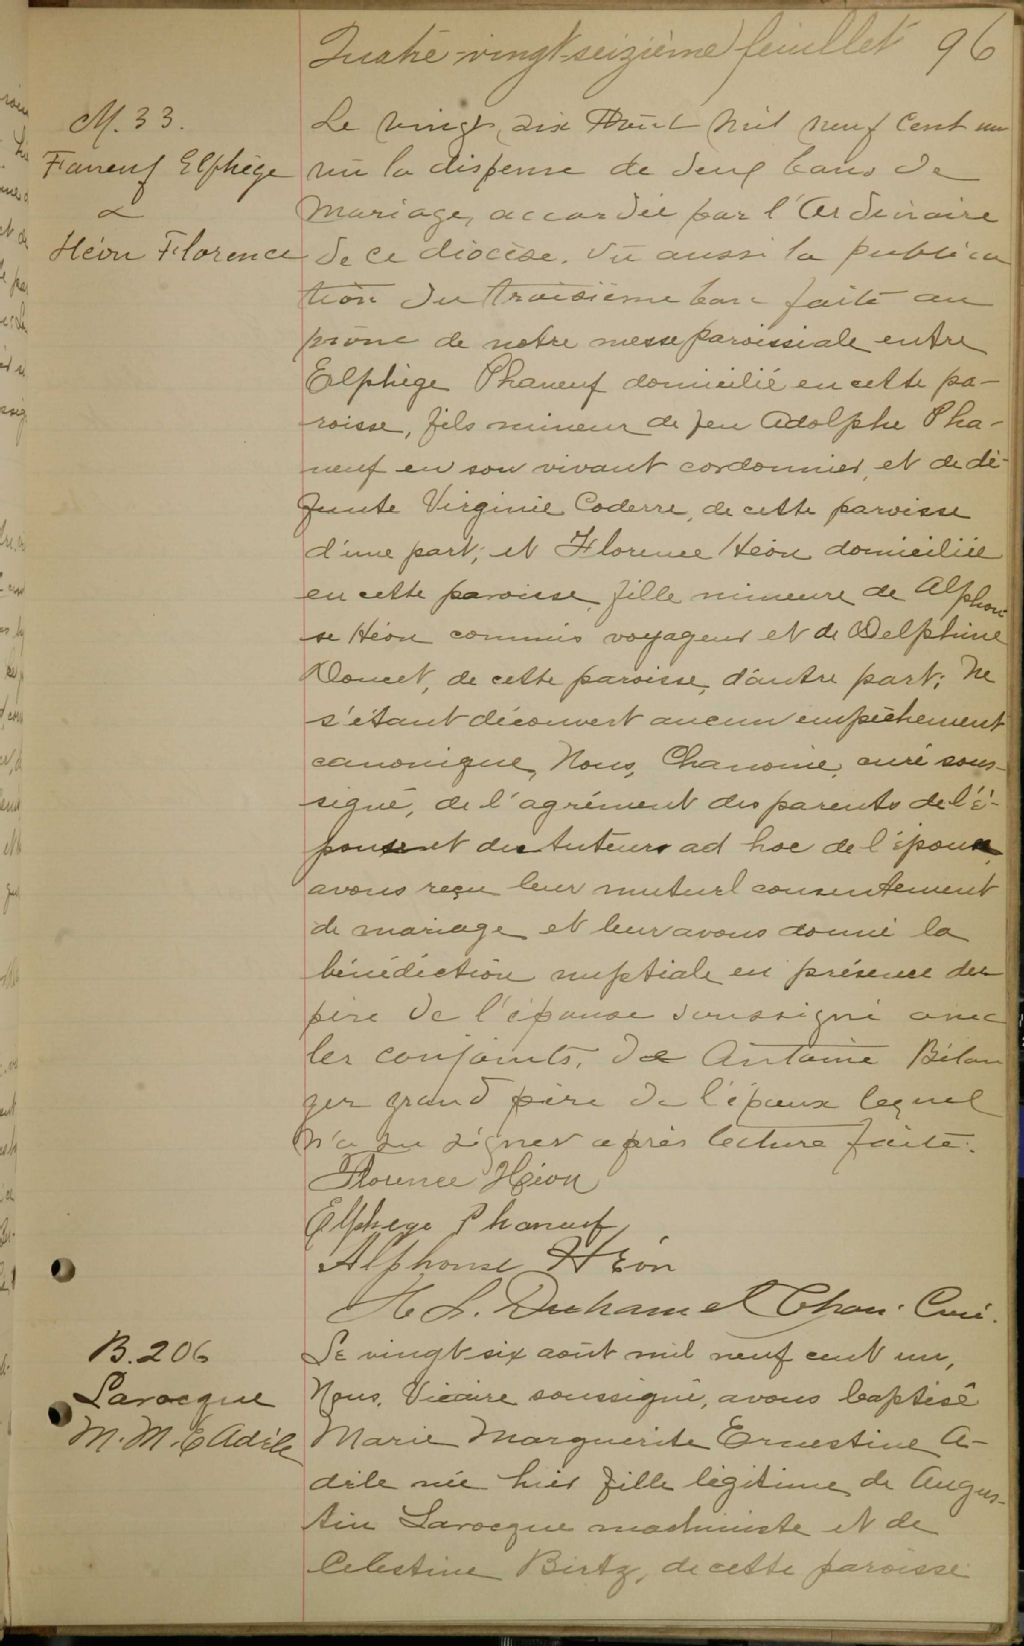 Quatre-vingt-seizième feuillet 96
M. 33.
Faneuf Elphège
&
Héon Florence
Le vingt six Août mil neuf Cent un
vû la dispense de deux bans de
Mariage, accordée par l'Ordinaire
de ce diocèse. Vû aussi la publica
tion du troisième ban faite au
prône de notre messe paroissiale entre
Elphège Phaneuf domicilié en cette pa-
roisse, fils mineur de feu Adolphe Pha-
neuf en son vivant cordonnier, et de dé-
funte Virginie Coderre, de cette paroisse
d'une part; et Florence Héon domiciliée
en cette paroisse, fille mineure de Alphon-
se Héon commis voyageur et de Delphine
Doucet, de cette paroisse, d'autre part; Ne
s'étant découvert aucun empêchement
canonique, Nous, Chanoine, curé sous-
signé, de l'agrément des parents de l'é-
pouse et du tuteur ad hoc de l'époux
avons reçu leur mutuel consentement
de mariage et leur avons donné la
bénédiction nuptiale en présence du
père de l'épouse soussigné avec
les conjoints, de Antoine Bélan
ger grand père de l'époux lequel
n'a su signer après lecture faite.
Florence Héon
Elphege Phaneuf
Alphonse Héon
H. L. Duhamel Chan. Curé.
B. 206
Larocque
M. M. E Adèle
Le vingt-six août mil neuf cent un,
Nous, Vicaire soussigné, avons baptisé
Marie Marguerite Ernestine A-
dèle née hier fille légitime de Augus-
tin Larocque machiniste et de
Celestine Birtz, de cette paroisse